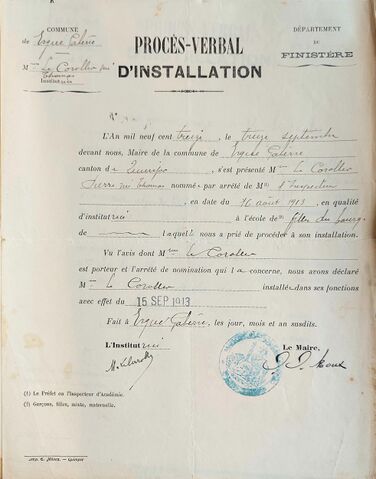 COMMUNE
de Ergué Gabéric
Mme Le Corollec née
Thomas
Institutrice
DÉPARTEMENT
DU
FINISTÈRE
PROCÈS-VERBAL
D'INSTALLATION
L'An mil neuf cent treize, le treize septembre
devant nous, Maire de la commune de Ergué Gabéric
canton de Quimper, s'est présentée Mme Le Corollec
née Thomas nommée par arrêté de M(1) l'Inspecteur
, en date du 16 août 1913, en qualité
d'institutrice à l'école de(2) filles du bourg
de laquelle nous a prié de procéder à son installation.
Vu l'avis dont Mme Le Corollec
est porteur et l'arrêté de nomination qui la concerne, nous avons déclaré
Mme Le Corollec installée dans ses fonctions
avec effet du 15 SEP 1913
Fait à Ergué Gabéric, les jour, mois et an susdits.
L'Institutrice Le Maire,
(1) Le Préfet ou l'Inspecteur d'Académie.
(2) Garçons, filles, mixte, maternelle.